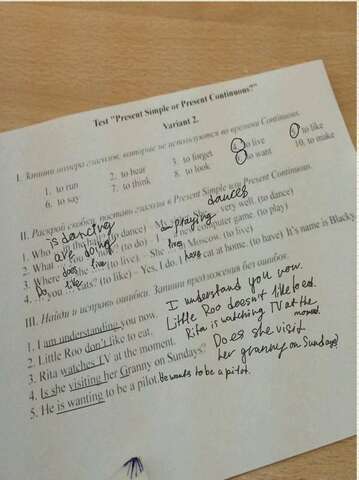 Test "Present Simple or Present Continuous?"
Variant 2.
I. Запиши номера глаголов, которые не используются во времени Continuous.
1. to run 2. to hear 3. to forget 4. to live 5. to like
6. to say 7. to think 8. to look 9. to want 10. to make
II. Раскрой скобки, поставь глаголы в Present Simple или Present Continuous.
is dancing dances
1. Who the (to dance) – very well. (to dance)
are doing praying
2. What you (to do) computer game. (to play)
does live lives
3. Where she (to live) – She Moscow. (to live)
Do like have
4. you cats? (to like) – Yes, I do. I cat at home. (to have) It's name is Blacky
III. Найди и исправь ошибки. Запиши предложения без ошибок.
1. I am understanding you now. I understand you now.
2. Little Roo don't like to eat. Little Roo doesn't like to eat.
3. Rita watches TV at the moment. Rita is watching TV at the moment.
4. Is she visiting her Granny on Sundays? Does she visit her granny on Sundays
5. He is wanting to be a pilot. He wants to be a pilot.